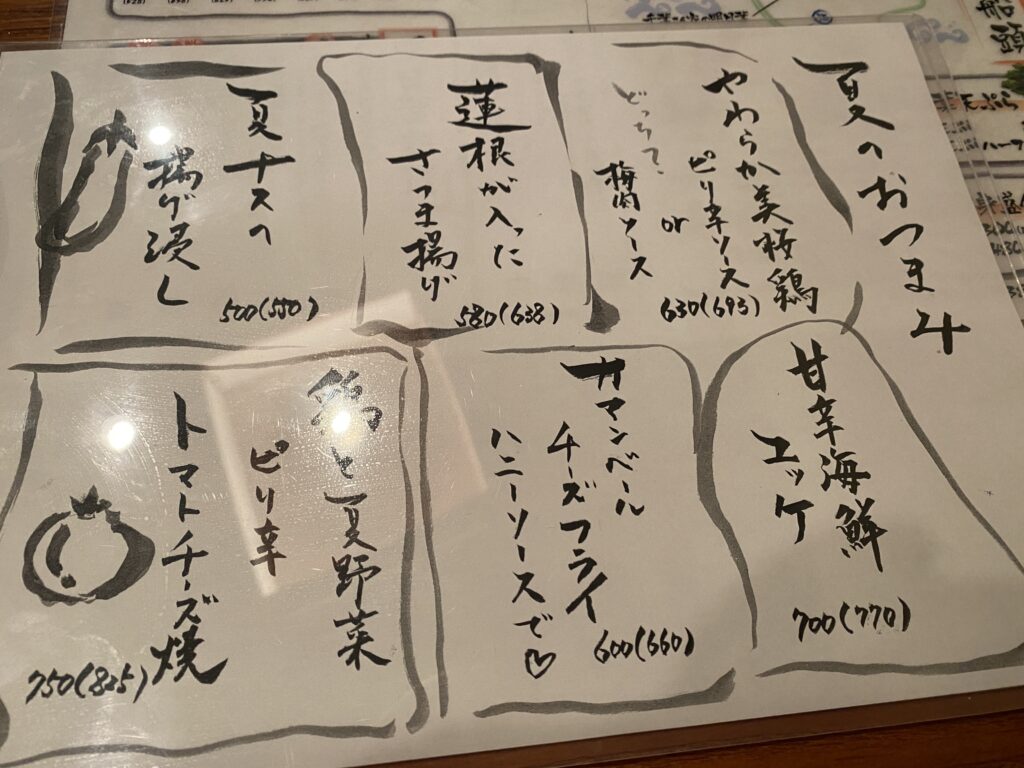 夏のおつまみ
やわらか美桜鶏
ピリ辛ソース
or
梅肉ソース
どっちで?
630(693)
蓮根が入った
さつま揚げ
580(638)
夏ナスの
揚げ浸し
500(550)
甘辛海鮮
ユッケ
700(770)
カマンベール
チーズフライ
ハニーソースで♡
600(660)
鶏と夏野菜
ピリ辛
トマトチーズ焼
750(825)
天ぷら